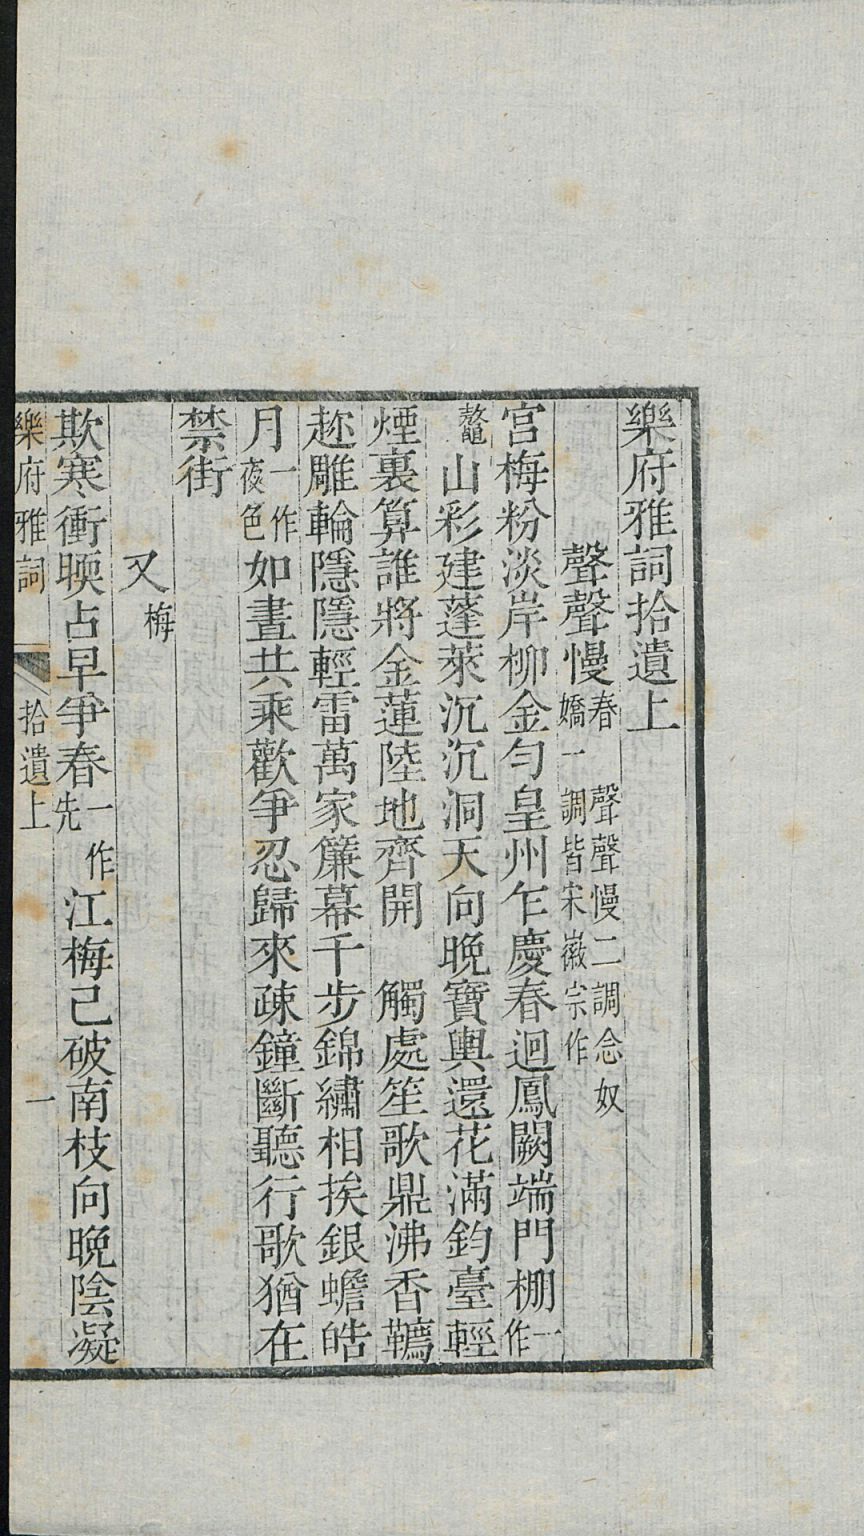 樂府雅詞拾遺上
聲聲慢春　聲聲慢二調念奴嬌一調皆宋徽宗作
宮梅粉淡岸柳金勻皇州乍慶春迴鳳闕端門棚一作
鼇山彩建蓬萊沉沉洞天向晚寶輿還花滿鈞臺輕
煙裏算誰將金蓮陸地齊開　觸處笙歌鼎沸香鞯
趂雕輪隱隱輕雷萬家簾幕千步錦繡相挨銀蟾皓
月一作夜色如晝共乘歡爭忍歸來疎鐘斷聽行歌猶在
禁街
又梅
欺寒衝暝占早爭春一作先江梅已破南枝向晚陰凝
樂府雅詞　拾遺上　一